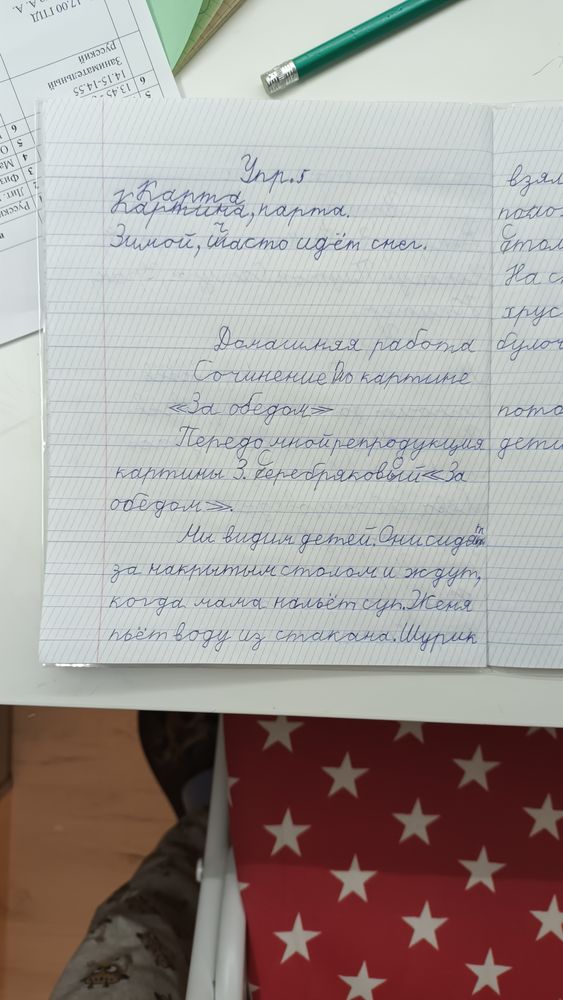 17.00 ГПД
А. А.
Русский
Занимательный
14.15-14.55
13.45-
6
5
Упр.5
Карта
Картина, парта.
Зимой, часто идёт снег.
Домашняя работа
Сочинение по картине
«За обедом»
Передо мной репродукция
картины З. Серебряковой «За
обедом».
Мы видим детей. Они сидят
за накрытым столом и ждут,
когда мама нальёт суп. Женя
пьёт воду из стакана. Шурик
взял
стол
На с
хрус
булоч
пото
дети